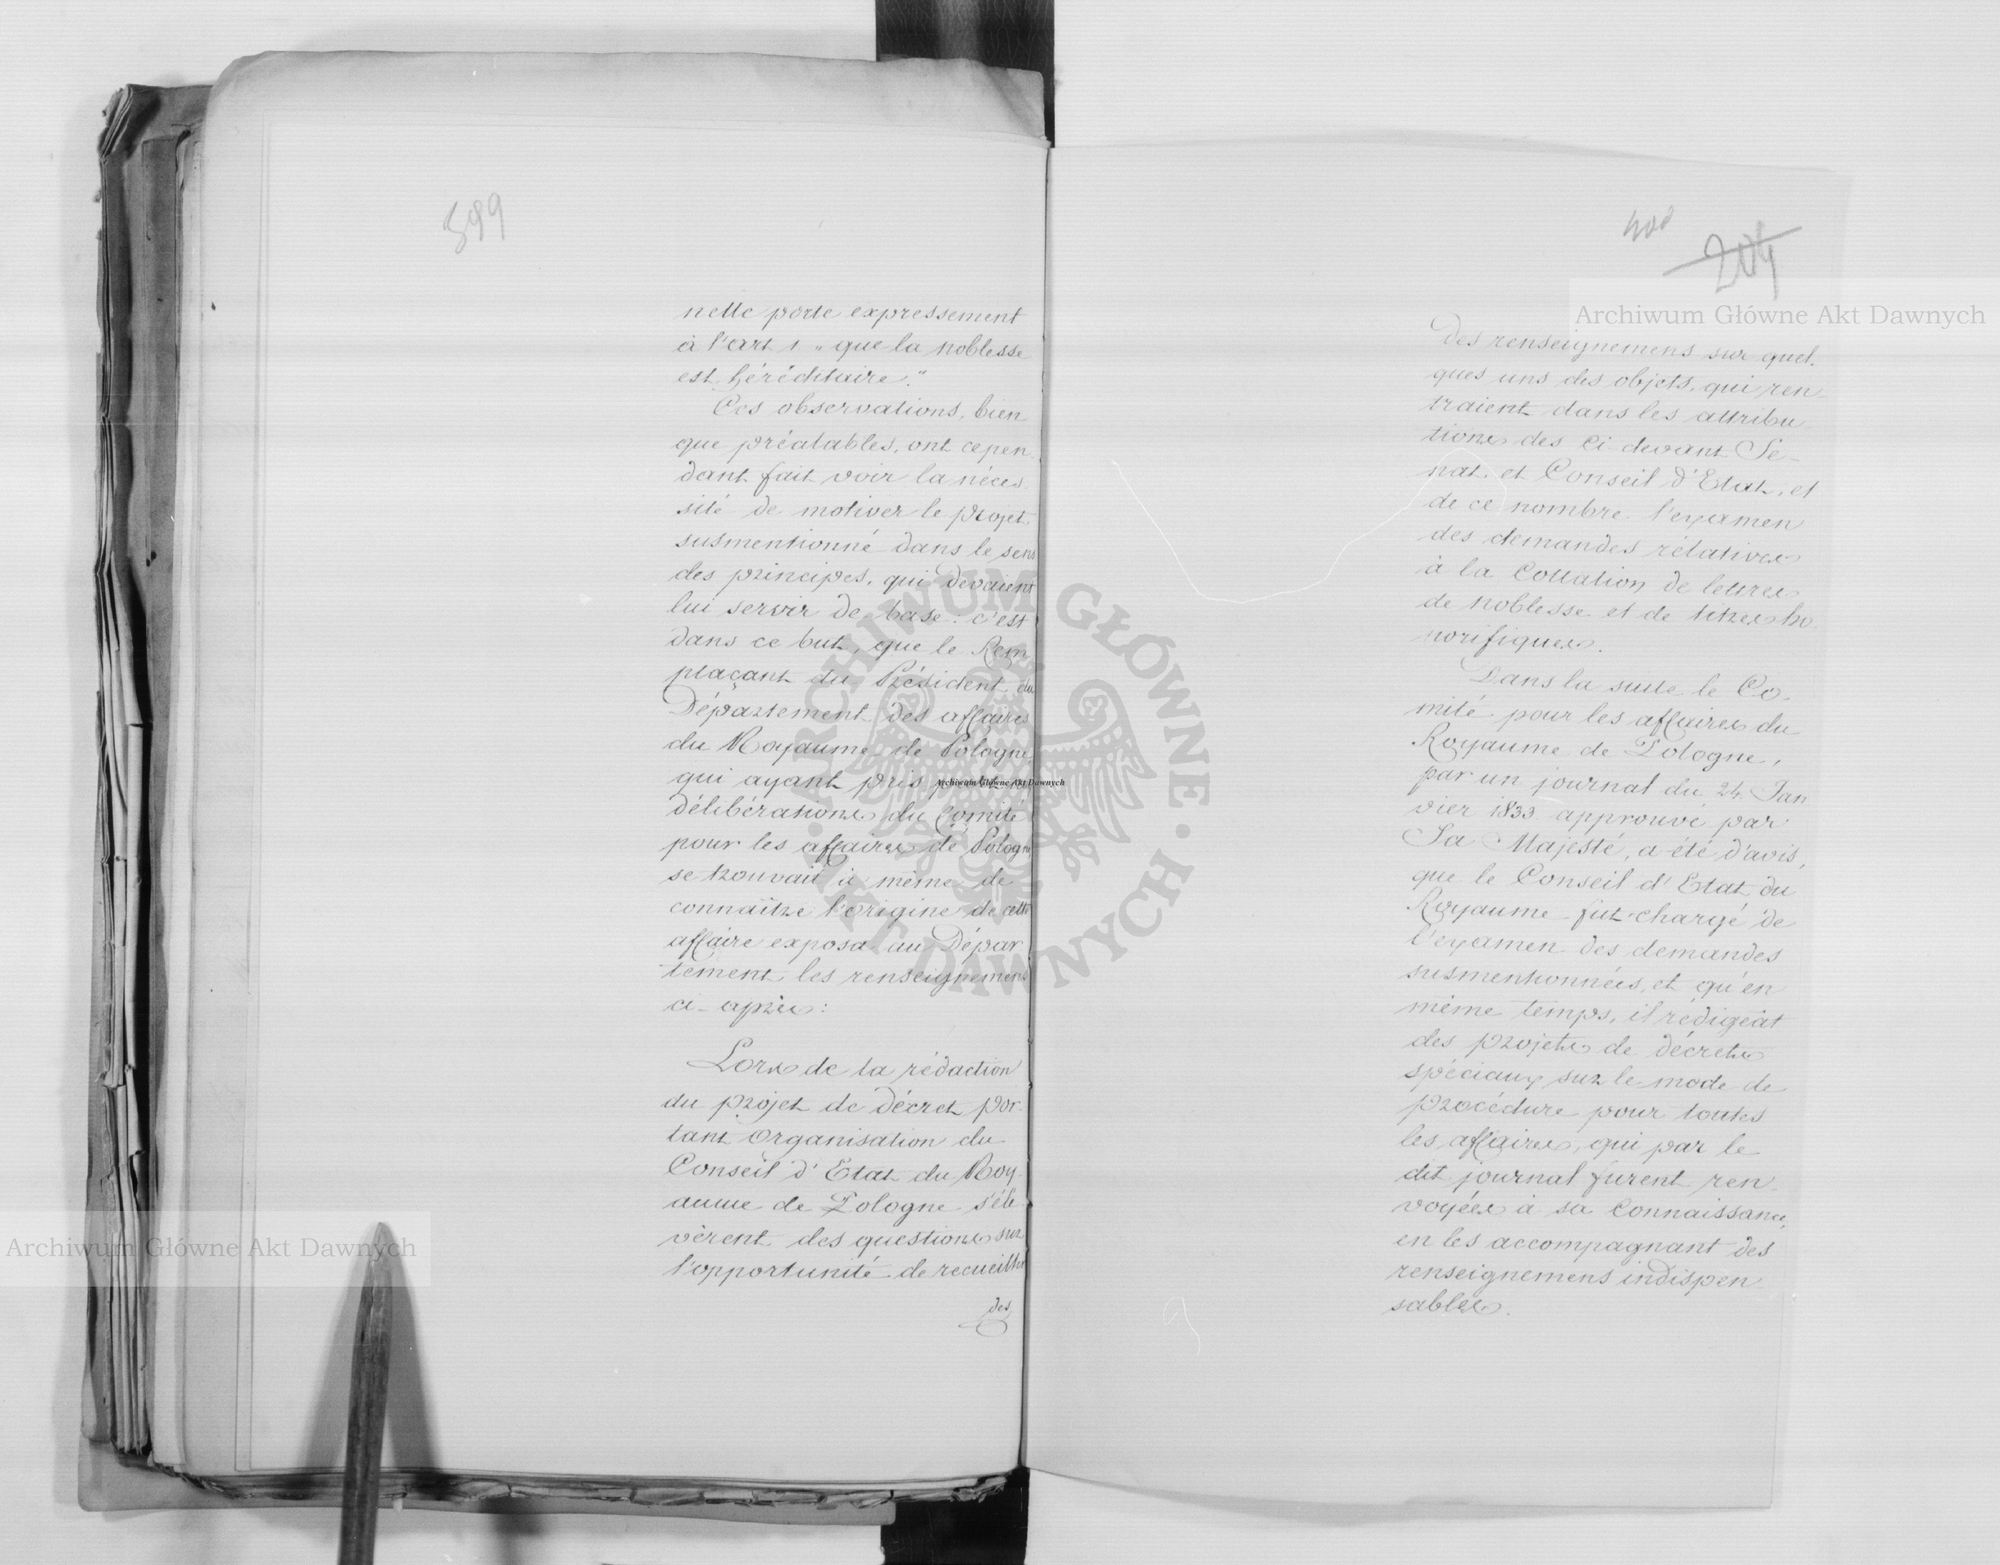 399
nelle porte expressement
à l'art 1 „ que la noblesse
est héréditaire."
Ces observations, bien
que préalables, ont cepen
dant fait voir la néces
sité de motiver le projet
susmentionné dans le sens
des principes, qui devaient
lui servir de base: c'est
dans ce but, que le Rem
plaçant du Président du
Département des affaires
du Royaume de Pologne,
qui ayant pris
délibérations du Comité
pour les affaires de Pologne
se trouvait à même de
connaître l'origine de cette
affaire exposa au Dépar
tement les renseignemens
ci-après:
Lors de la rédaction
du projet de décret por-
tant Organisation du
Conseil d'Etat du Roy
aume de Pologne s'éle
vèrent des questions sur
l'opportunité de recueillir
des
400
204
des renseignemens sur quel-
ques uns des objets, qui ren
traient dans les attribu
tions des ci devant Se-
nat et Conseil d'Etat, et
de ce nombre l'examen
des demandes rélatives
à la Collation de lettres
de noblesse et de titres ho
norifiques.
Dans la suite le Co-
mité pour les affaires du
Royaume de Pologne,
par un journal du 24 Jan
vier 1833 approuvé par
Sa Majesté, a été d'avis,
que le Conseil d'Etat du
Royaume fut chargé de
l'examen des demandes
susmentionnées, et qu'en
même temps, il rédigeât
des projets de décrets
spéciaux sur le mode de
procédure pour toutes
les affaires, qui par le
dit journal furent ren
voyées à sa connaissance,
en les accompagnant des
renseignemens indispen
sables.
Archiwum Główne Akt Dawnych
Archiwum Główne Akt Dawnych
Archiwum Główne Akt Dawnych
ARCHIWUM GŁÓWNE · AKT DAWNYCH ·